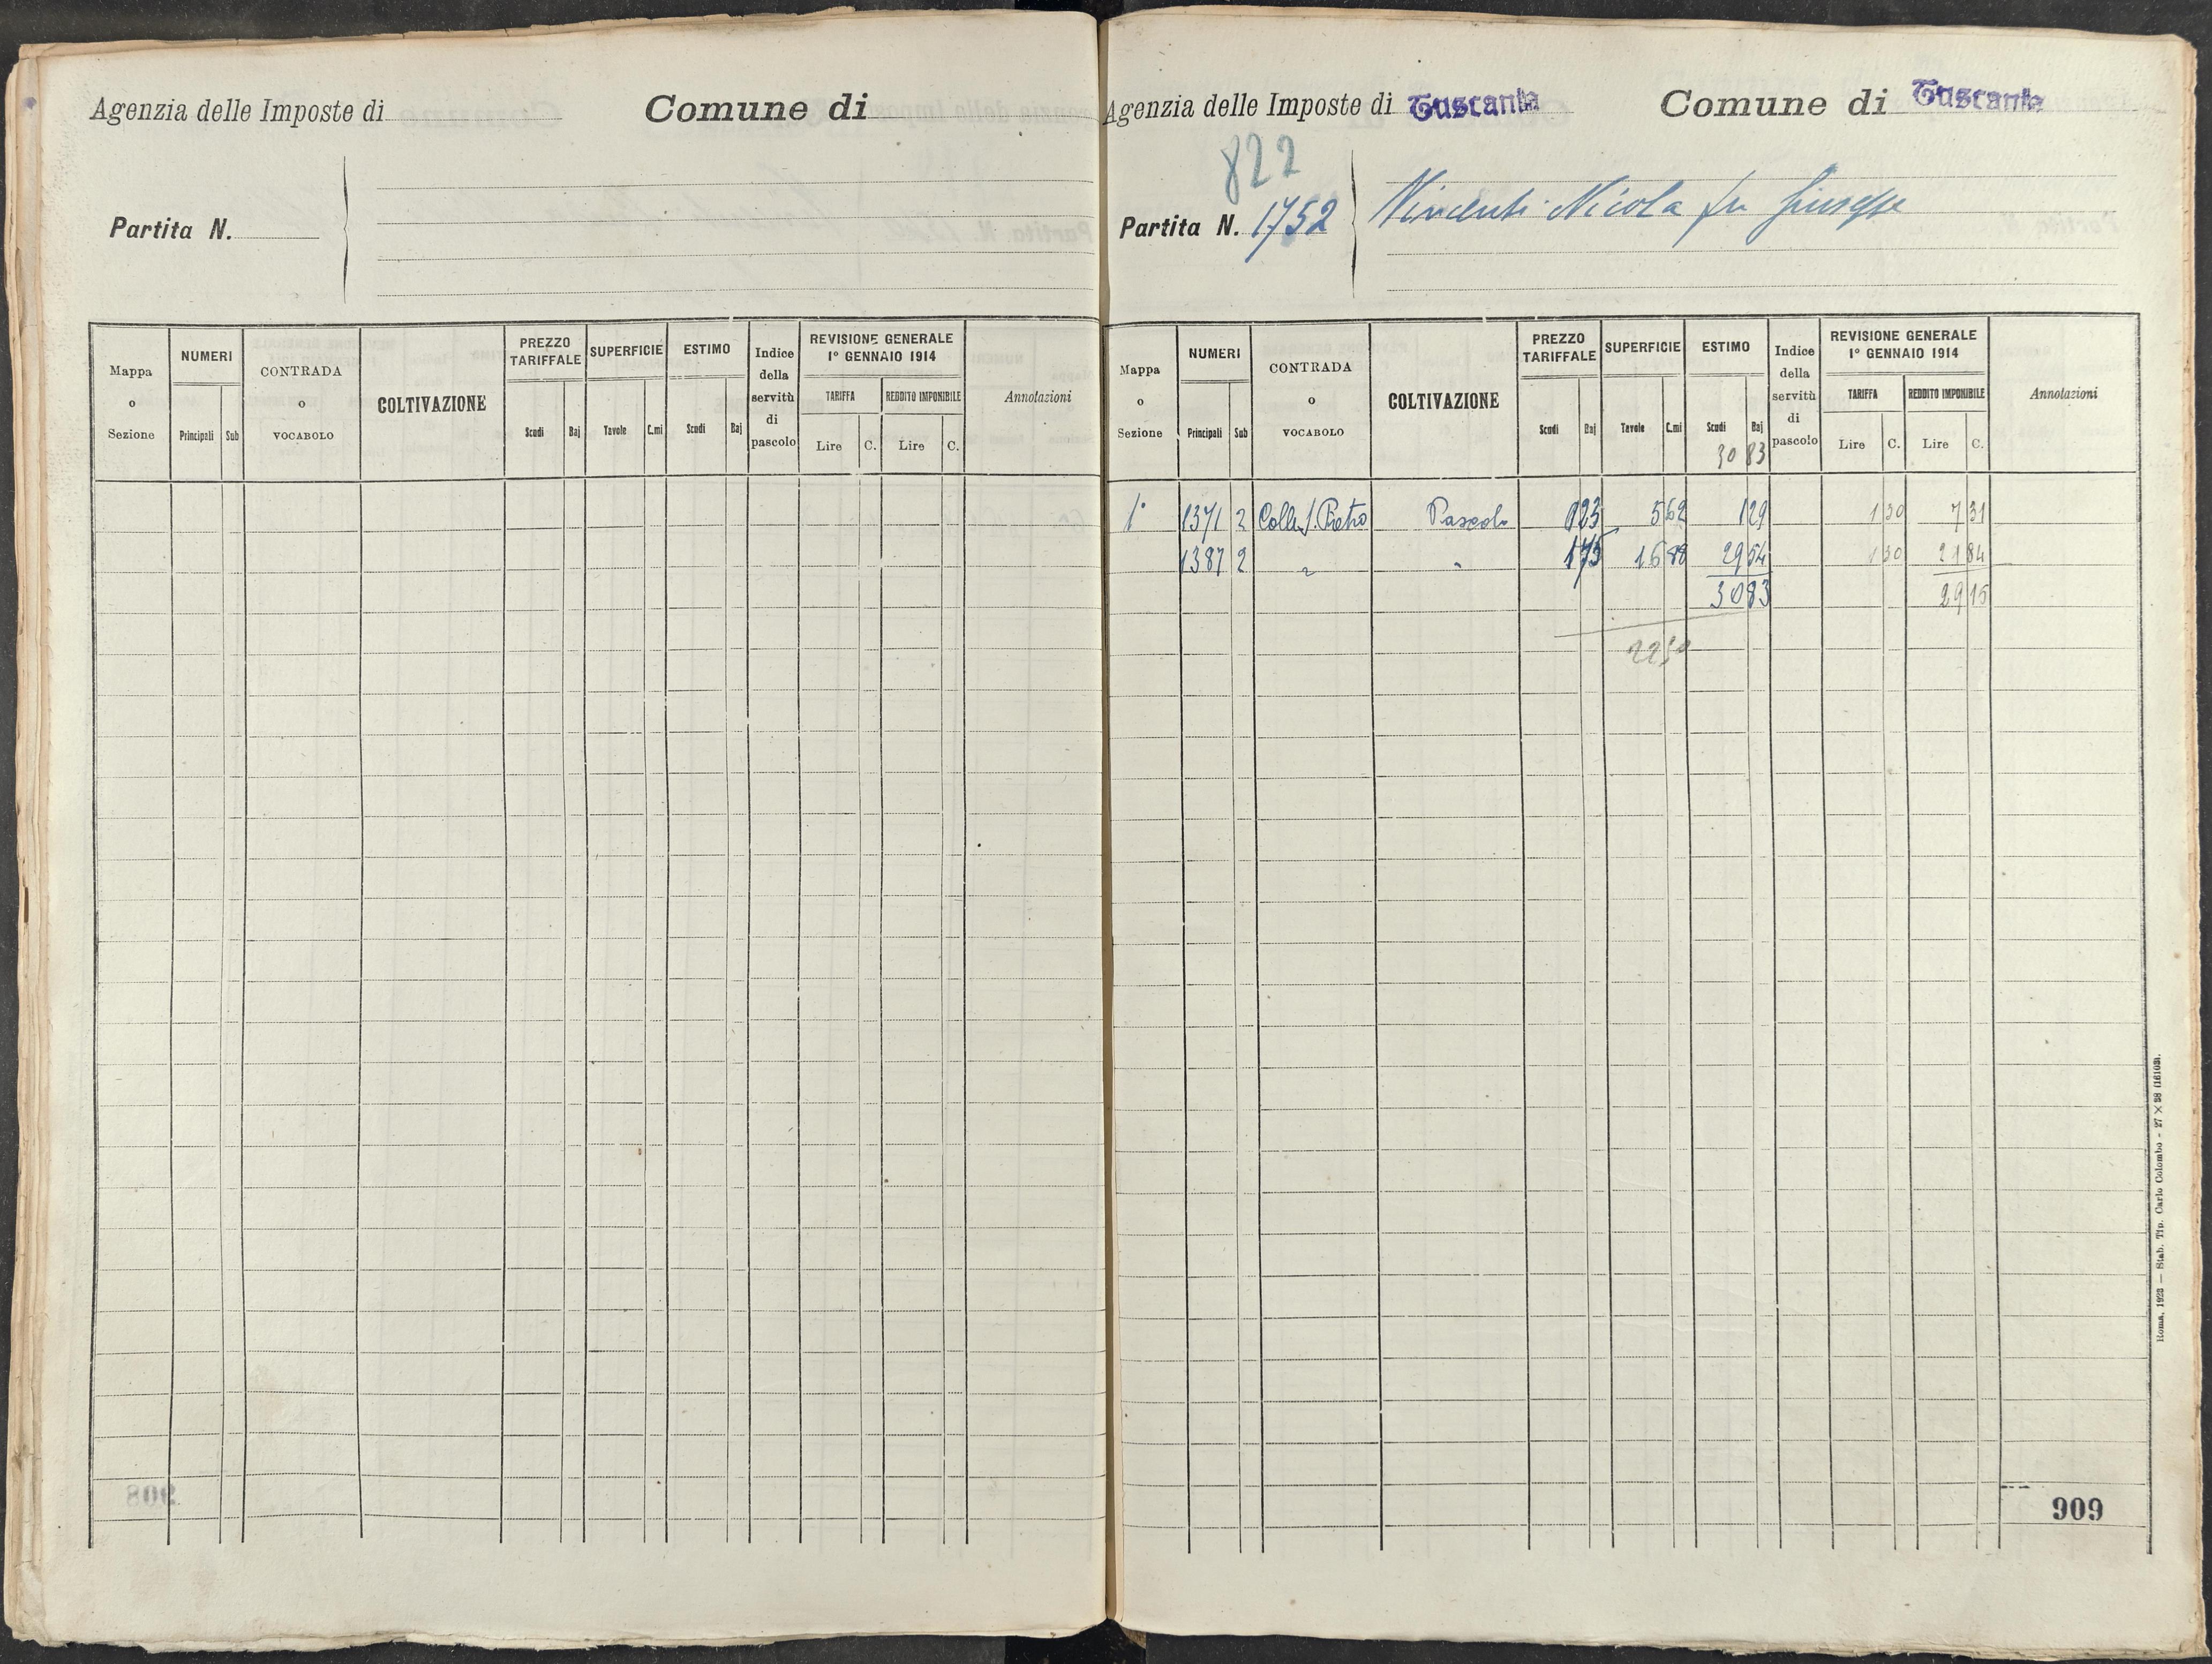 Agenzia delle Imposte di
Comune di
Partita N.
Mappa o Sezione
NUMERI
Principali Sub
CONTRADA o VOCABOLO
COLTIVAZIONE
PREZZO TARIFFALE
Scudi Baj
SUPERFICIE
Tavole C.mi
ESTIMO
Scudi Baj
Indice della servitù di pascolo
REVISIONE GENERALE
1º GENNAIO 1914
TARIFFA
Lire C.
REDDITO IMPONIBILE
Lire C.
Annotazioni
Agenzia delle Imposte di Tuscania
Comune di Tuscania
822
Partita N. 1752
Vincenti Nicola fu Giuseppe
Mappa o Sezione
NUMERI
Principali Sub
CONTRADA o VOCABOLO
COLTIVAZIONE
PREZZO TARIFFALE
Scudi Baj
SUPERFICIE
Tavole C.mi
ESTIMO
Scudi Baj
30 83
Indice della servitù di pascolo
REVISIONE GENERALE
1º GENNAIO 1914
TARIFFA
Lire C.
REDDITO IMPONIBILE
Lire C.
Annotazioni
1º 1371 2 Colle S. Pietro Pascolo 0 23 5 62 1 29 1 30 7 31
1387 2 " " 1 75 16 88 29 54 1 30 21 84
30 83 29 15
22 50
909
Roma, 1923 — Stab. Tip. Carlo Colombo - 27 × 38 (16103).